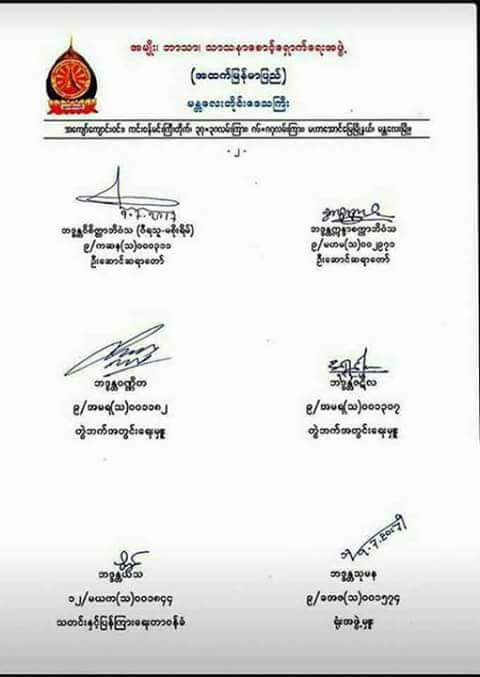 အမျိုး၊ ဘာသာ၊ သာသနာစောင့်ရှောက်ရေးအဖွဲ့
(အထက်မြန်မာပြည်)
မန္တလေးတိုင်းဒေသကြီး
အကျော်ကျောင်းဝင်း၊ ကင်းဝန်မင်းကြီးတိုက်၊ ၃၇×၃၈လမ်းကြား၊ ၈၆×၈၇လမ်းကြား၊ မဟာအောင်မြေမြို့နယ်၊ မန္တလေးမြို့။
-၂-
ဘဒ္ဒန္တဝိစိတ္တာဘိဝံသ (ဝီရသူ-မစိုးရိမ်)
၉/ကဆန(သ)၀၀၀၃၁၁
ဦးဆောင်ဆရာတော်
၉/မဟမ(သ)၀၀၂၉၇၁
ဦးဆောင်ဆရာတော်
ဘဒ္ဒန္တဝဏ္ဏိတ
၉/အမရ(သ)၀၀၁၁၈၂
တွဲဘက်အတွင်းရေးမှူး
ဘဒ္ဒန္တဇဋိလ
၉/အမရ(သ)၀၀၁၃၁၇
တွဲဘက်အတွင်းရေးမှူး
ဘဒ္ဒန္တယသ
၁၂/မယက(သ)၀၀၁၈၄၄
သတင်းနှင့်ပြန်ကြားရေးတာဝန်ခံ
ဘဒ္ဒန္တသုမန
၉/ခအဇ(သ)၀၀၁၅၇၄
ရုံးအဖွဲ့မှူး